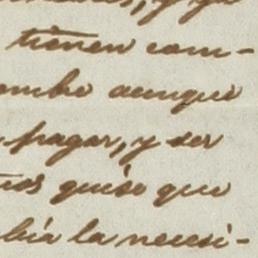 tienen com-
ombo aunque
pagar, y ser
quiso que
bía la necesi-